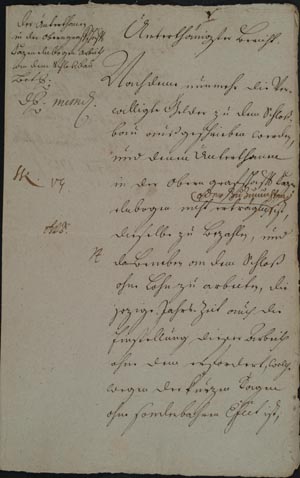 der Unterthanen
in der obergraffschafft
Cazenelnbogen Arbeit
an dem Schloßbau
betr.
Unterthänigster Bericht
Nachdeme nunmehr die Ver-
willigte Gelder zu dem Schloß-
bau außgeschrieben werden,
und denen Unterthanen
in der Obern graffschafft Caze-
nelnbogen nicht erträglich ist,
dieselbe zu bezahlen, und
darneben an dem Schloß
ohne Lohn zu arbeiten, die
jezige Jahrs Zeit auch die
Einstellung dieser Arbeit
ohne dem erfordert, welche
wegen der kurzen Tagen
ohne sonderbahren Effect ist,